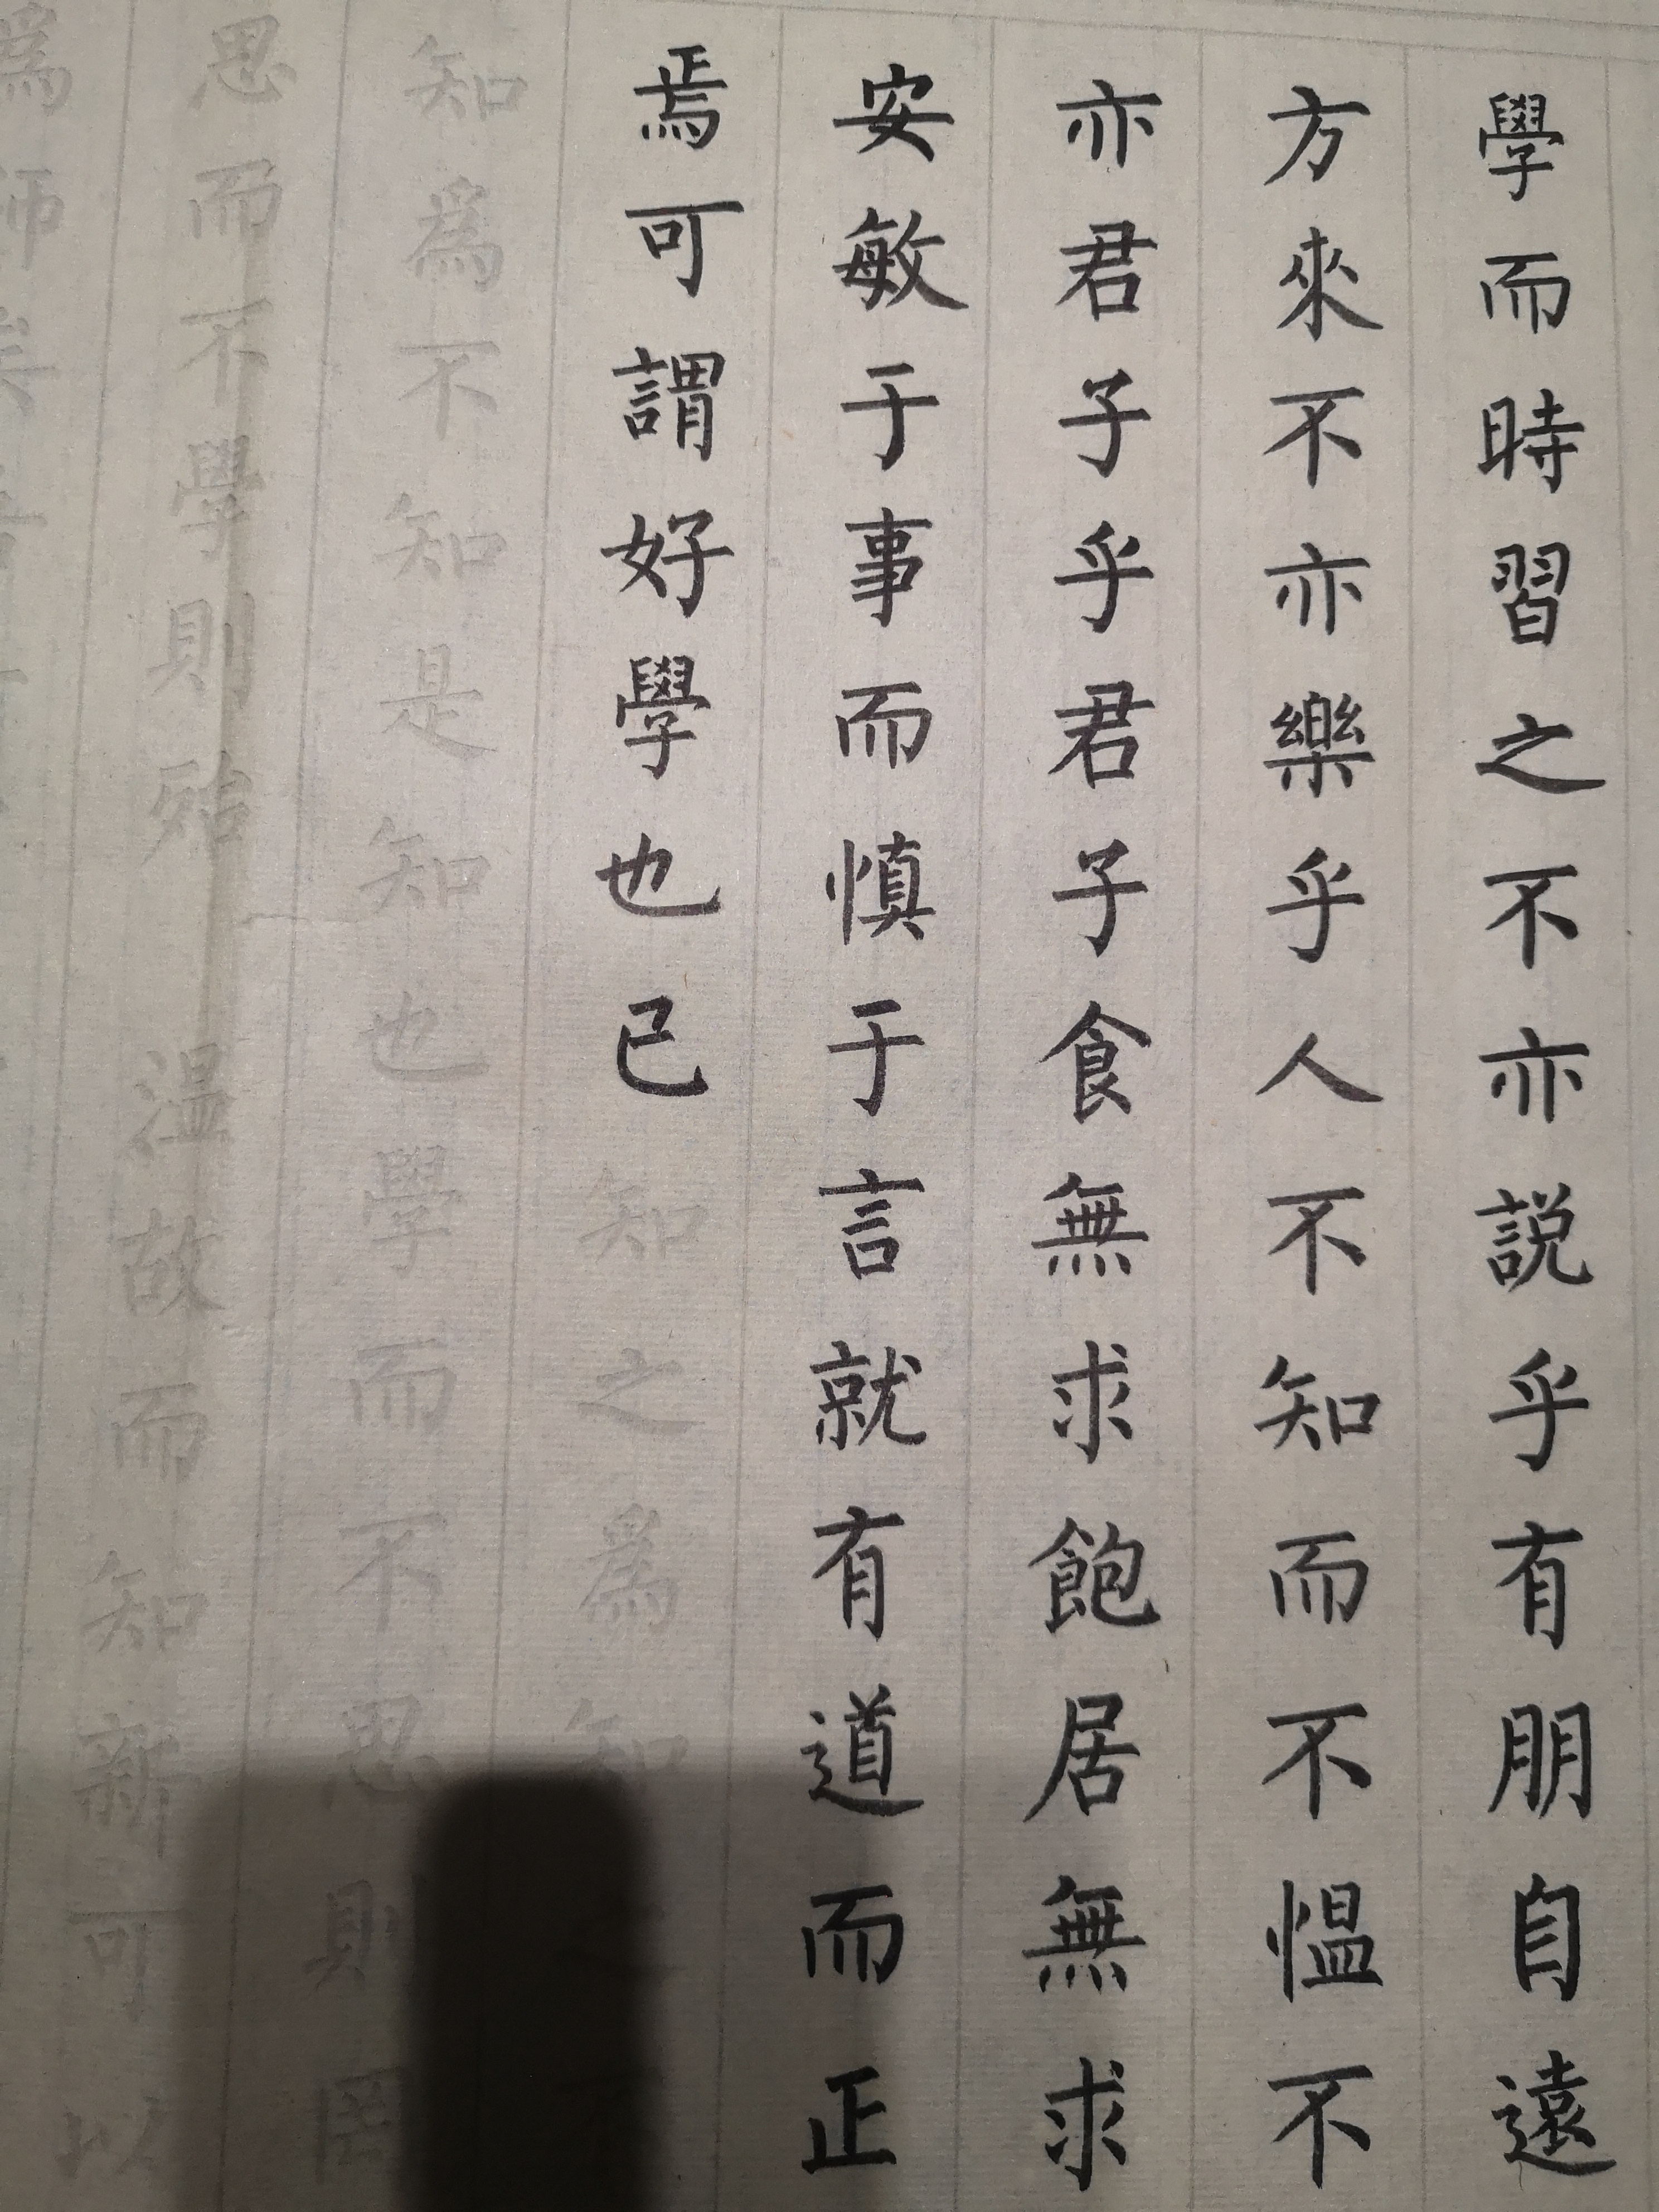 學而時習之不亦説乎有朋自遠
方來不亦樂乎人不知而不愠不
亦君子乎君子食無求飽居無求
安敏于事而慎于言就有道而正
焉可謂好學也已知之爲知
知爲不知是知也學而不思則罔
思而不學則殆温故而知新可以
爲師矣